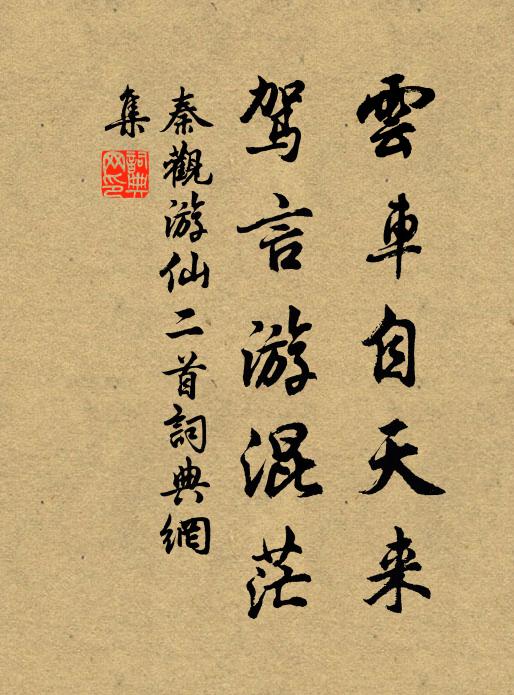 雲車自天来
驾言游混茫
秦觀游仙二首詞典網
集
詞典
网印